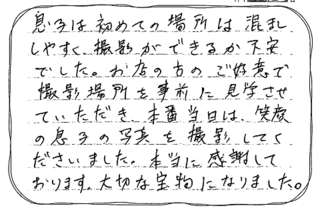 息子は初めての場所は混乱
しやすく撮影ができるか不安
でした。お店の方のご好意で
撮影場所を事前に見学させ
ていただき本番当日は、笑顔
の息子の写真を撮影してく
ださいました。本当に感謝して
おります。大切な宝物になりました。